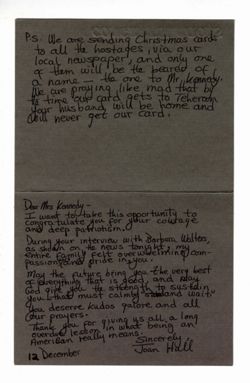 P.S. We are sending Christmas cards
to all the hostages, via our
local newspaper, and only one
of them will be the bearer of
a name — the one to Mr. Kennedy.
We are praying like mad that by
the time our card gets to Teheran
your husband will be home and
will never get our card.
Dear Mrs Kennedy –
I want to take this opportunity to
congratulate you for your courage
and deep patriotism.
During your interview with Barbara Walters,
as shown on the news tonight, my
entire family felt overwhelming com-
passion and pride in you.
May the future bring you the very best
of everything that is good, and may
God give you the strength to sustain
you that must calmly "stand and wait"
You deserve kudos galore and all
our prayers.
Thank you for giving us all a long
overdue lesson in what being an
American really means.
Sincerely,
Joan Hill
12 December